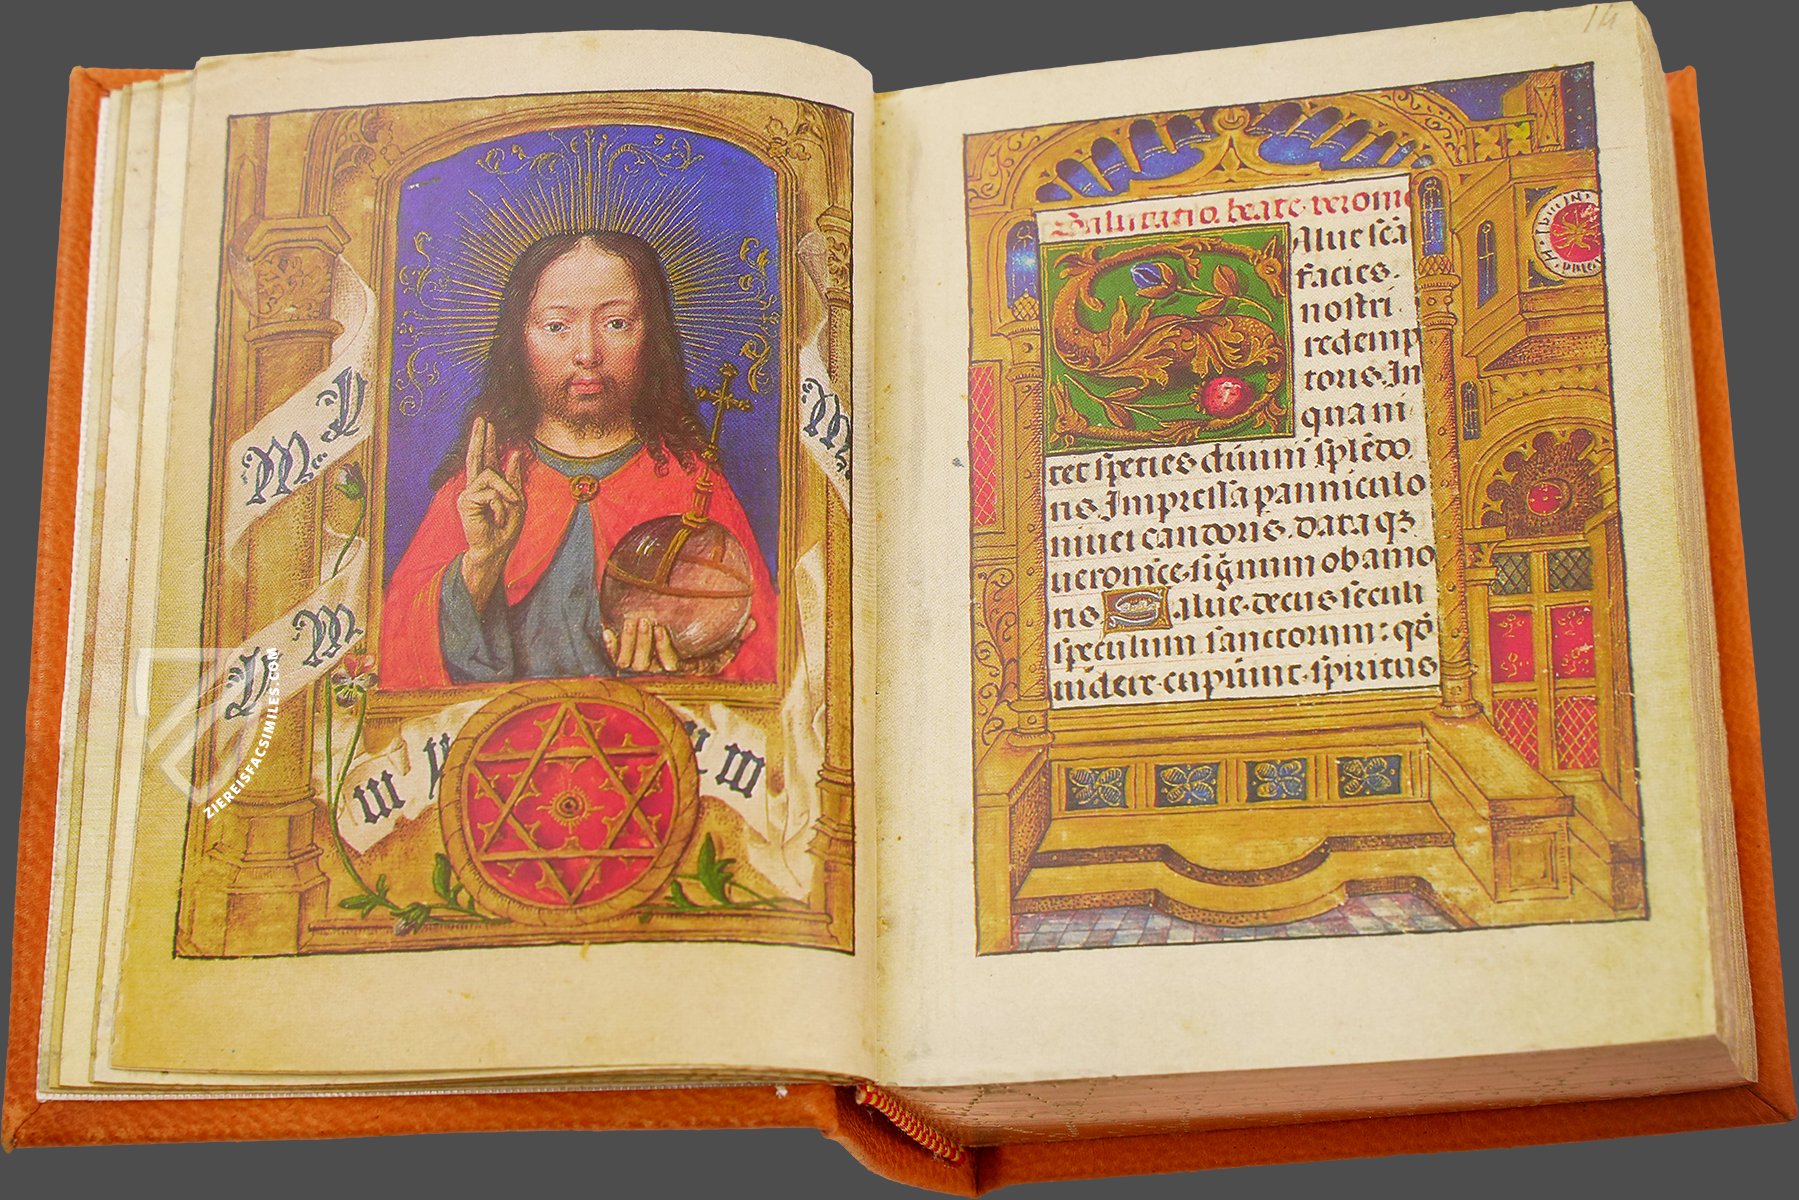 M. Y
M.
V M
m y m
ZIEREISFACSIMILES.COM
14
Salutatio. beate. veronic
Alue scā
facies.
nostri.
redemp
toris. In
qua ni
tet species diuini splēdo
ris. Impressa panniculo
niuei candoris. data qꝫ
veronice. signum ob amo
ris Salue. decus seculi
speculum sanctorum: qō
videre cupiunt. spiritus